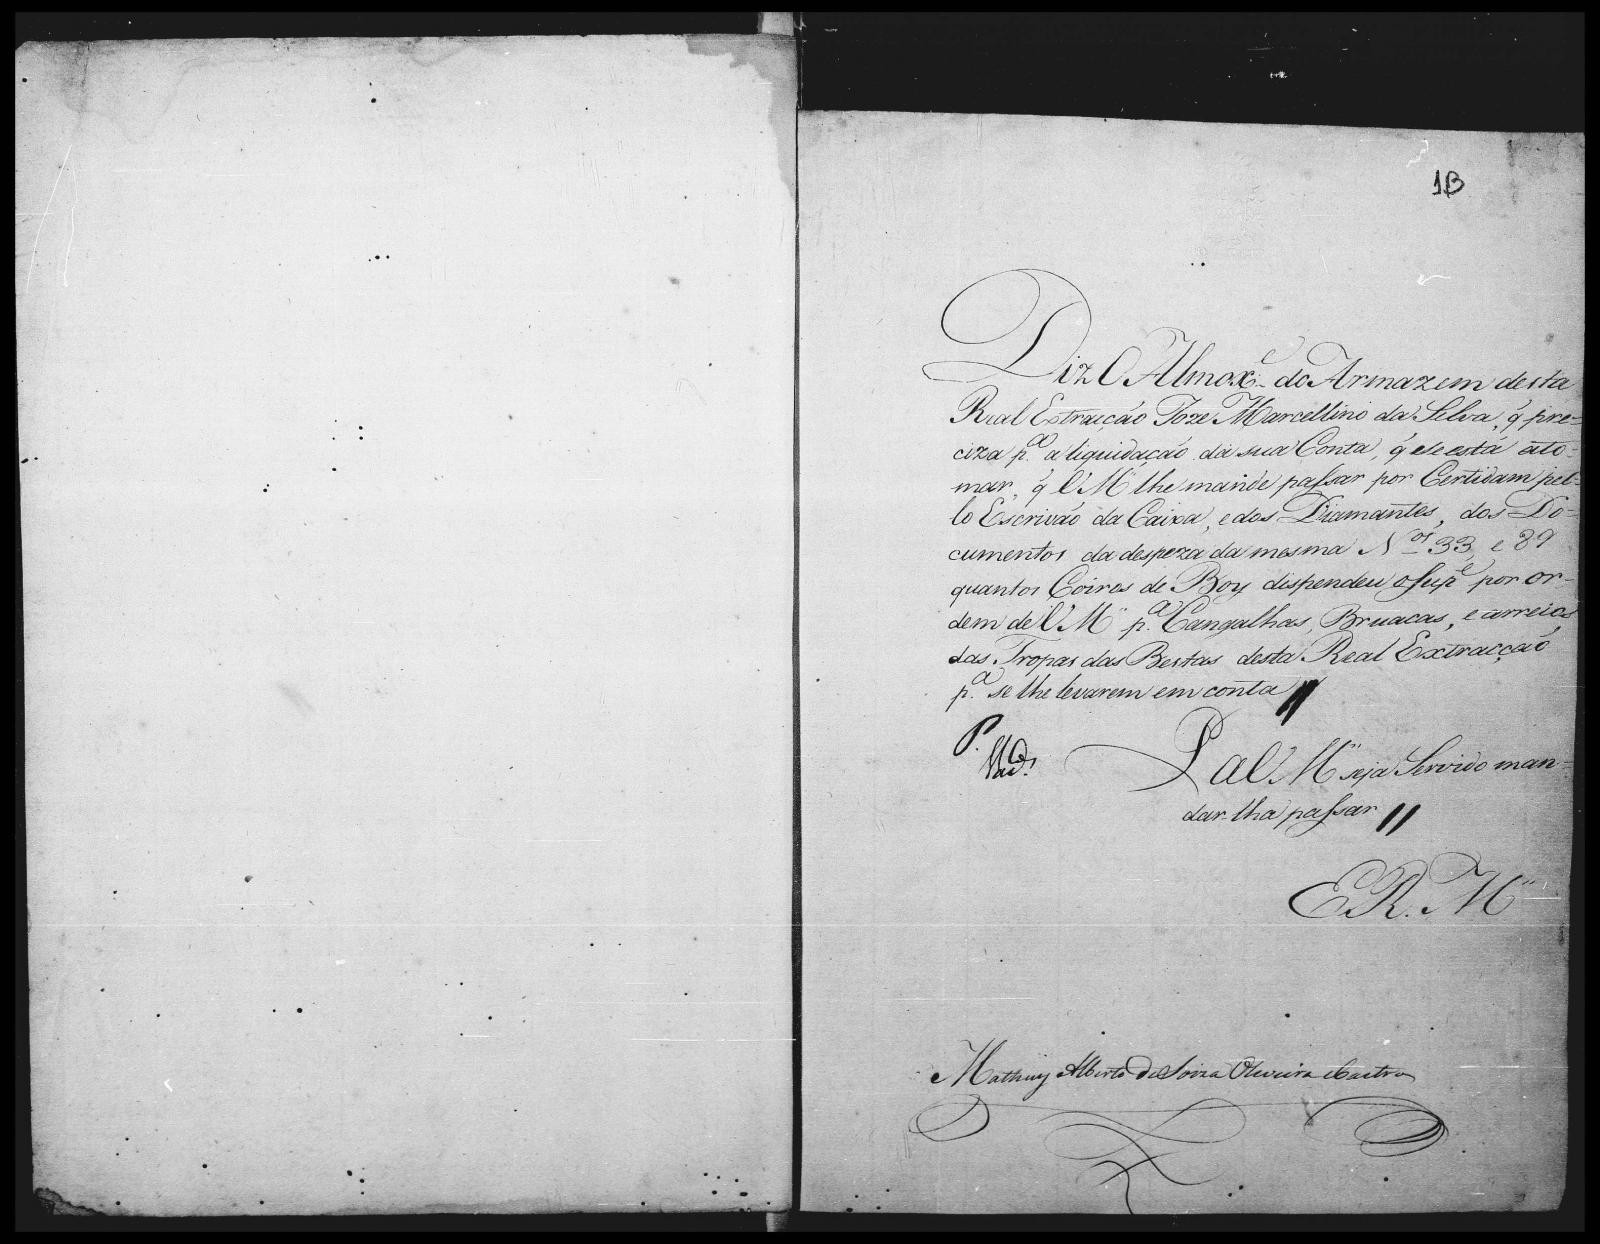 13
Diz O Almox.e do Armazem desta
Real Estraicção Joze Marcellino da Selva, q̃ pre=
ciza p.a a liquidação da sua Conta, q̃ se está ato=
mar, q̃ V M.ce lhe mande passar por Certidam pel=
lo Escrivão da Caixa, e dos Diamantes, dos Do=
cumentos da despeza da mesma N.os 33, e 89
quantos Coiros de Boy dispendeu o sup.e por or=
dem de V M.ce p.a Cangalhas, Bruacas, e arreios
das Tropas das Bestas desta Real Extracção
p.a se lhe levarem em conta //
P.
P a V M.ce seja Servido man=
dar-lha passar //
E R. M.ce
Mathias Alberto de Soiza Oliveira e Castro